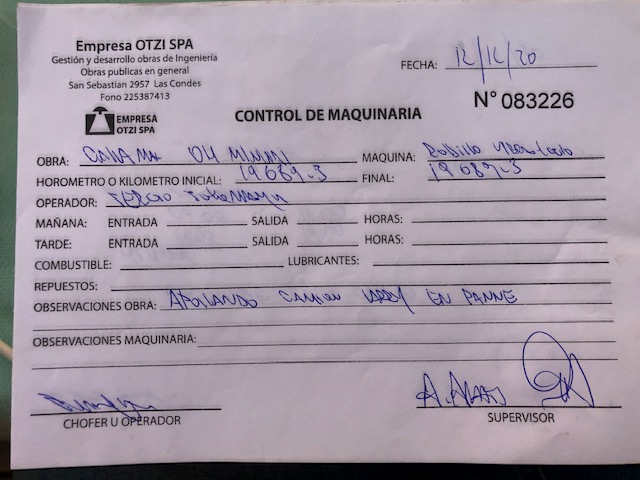 Empresa OTZI SPA
Gestión y desarrollo obras de Ingeniería
Obras publicas en general
San Sebastian 2957 Las Condes
Fono 225387413
FECHA: 12/12/20
EMPRESA
OTZI SPA
CONTROL DE MAQUINARIA
N° 083226
OBRA: MAQUINA: Rodillo
HOROMETRO O KILOMETRO INICIAL: 19689.3 FINAL: 19689.3
OPERADOR:
MAÑANA: ENTRADA SALIDA HORAS:
TARDE: ENTRADA SALIDA HORAS:
COMBUSTIBLE: LUBRICANTES:
REPUESTOS:
OBSERVACIONES OBRA: APOLLANDO CAMION EN PANNE
OBSERVACIONES MAQUINARIA:
CHOFER U OPERADOR SUPERVISOR